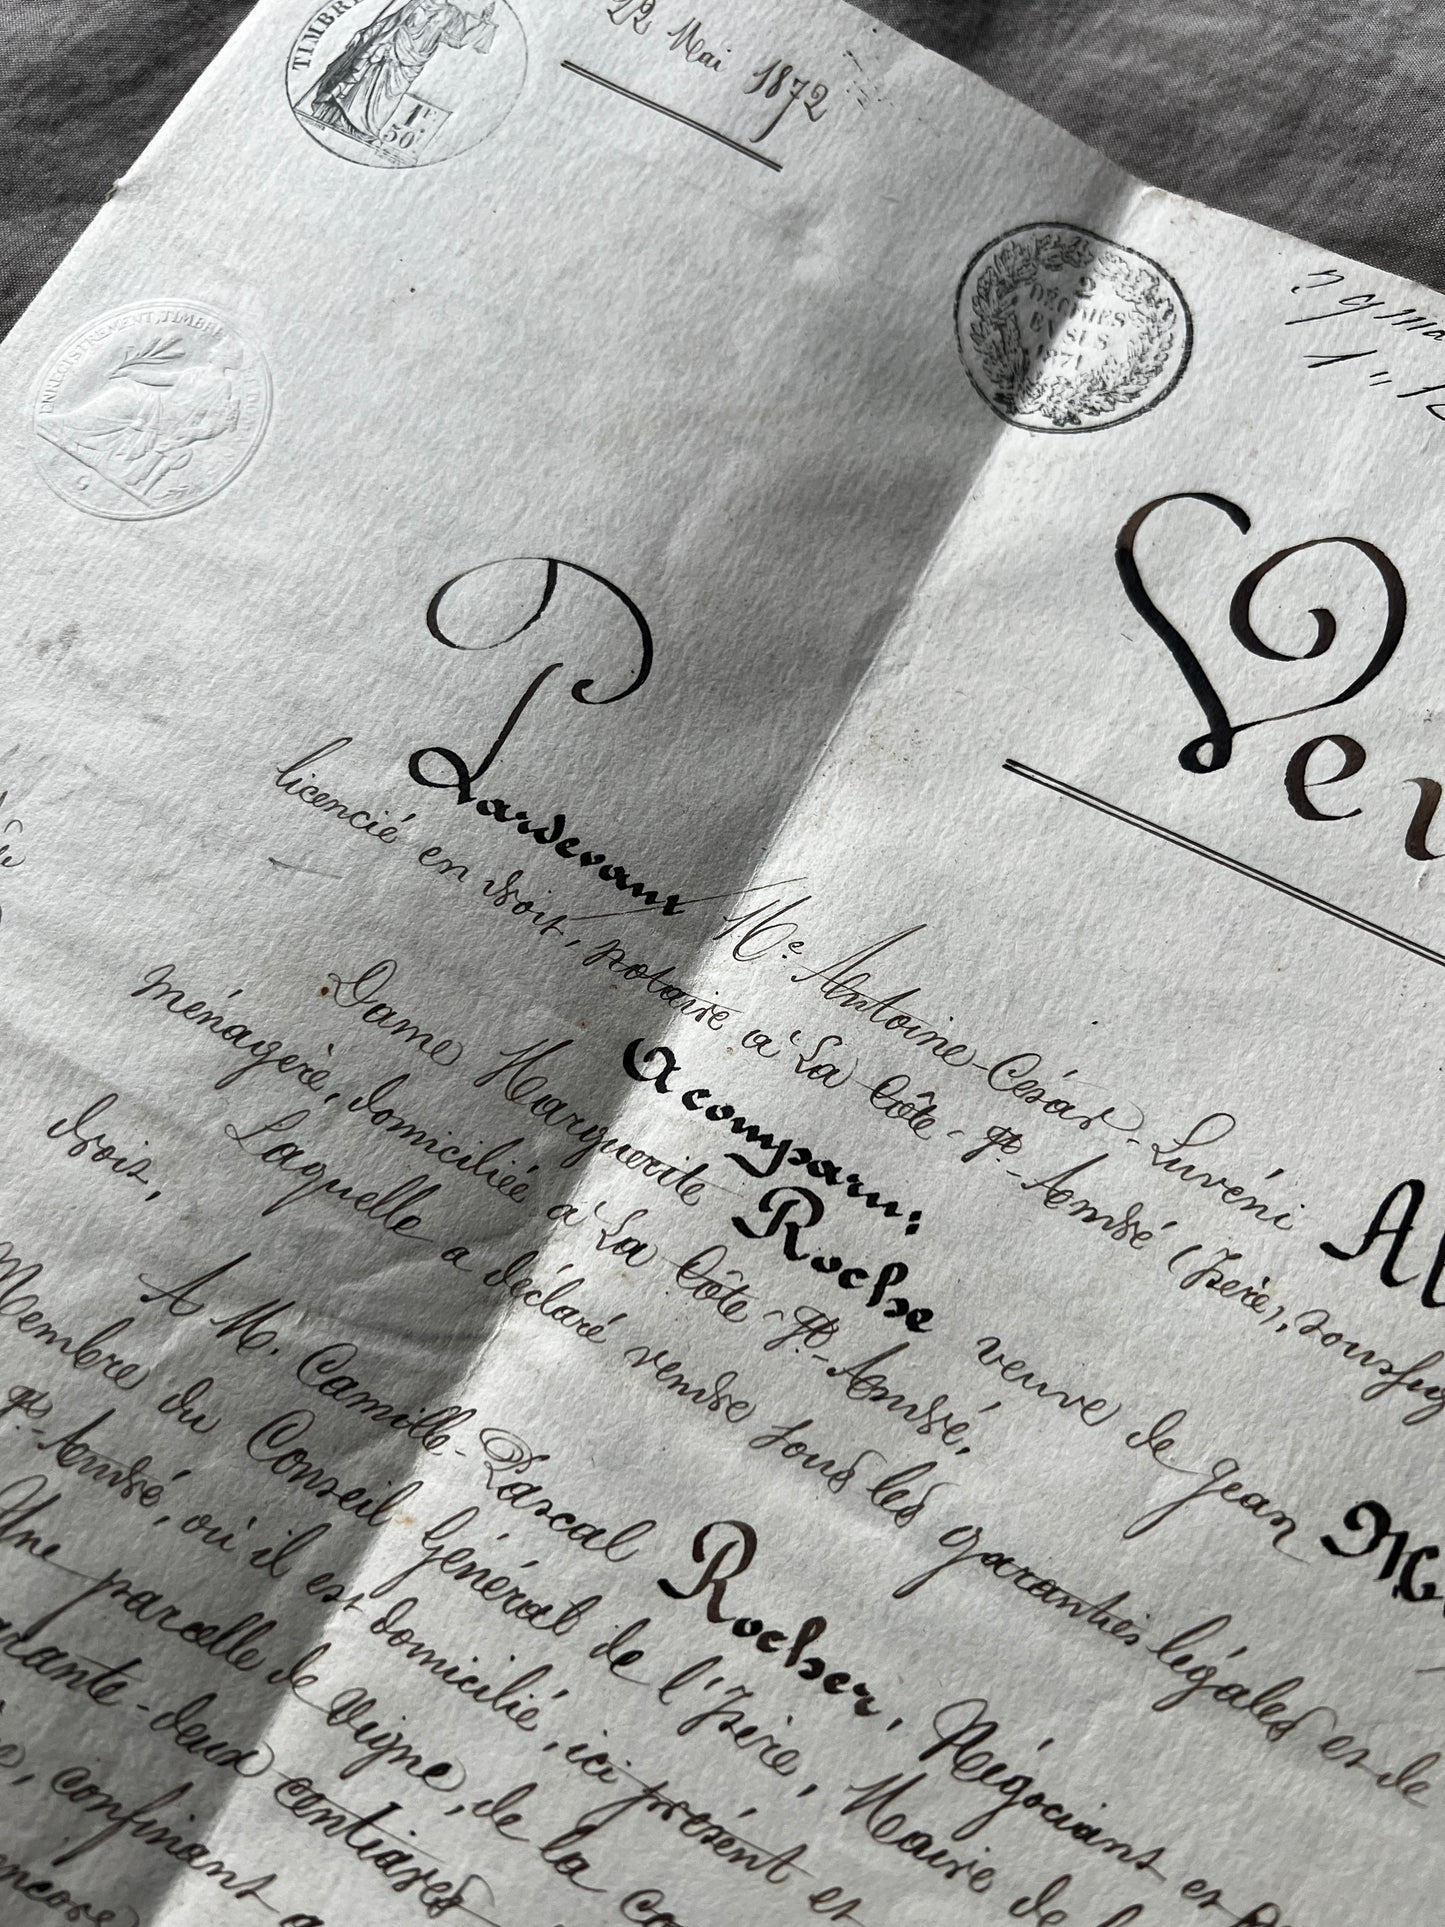 TIMBRE
1F
50c
22 Mai 1872
ENREGISTREMENT, TIMBRE ET DOM
2
DÉCIMES
EN SUS
1871
Ve
Pardevant Me Antoine-César-Luvéni Al
licencié en droit, notaire à La Côte-St-André (Isère), soussig
A comparu:
Dame Marguerite Roche veuve de Jean M
ménagère, domiciliée à La Côte-St-André,
Laquelle a déclaré vendre sous les garanties légales et de
droit,
A M. Camille-Pascal Rocher, Négociant et
Membre du Conseil Général de l'Isère, Maire de
St-André, où il est domicilié, ici présent et
Une parcelle de Vigne, de la co
arante-deux centiares
confinant a
encore